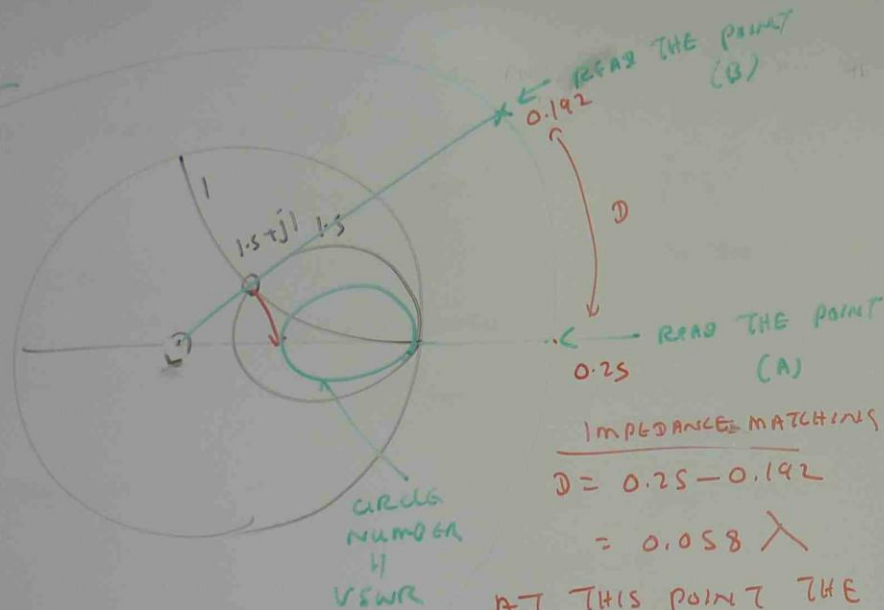 READ THE POINT
(B)
0.192
1
1.5+j1
1.5
D
READ THE POINT
(A)
0.25
IMPEDANCE MATCHING
D = 0.25 - 0.192
= 0.058 λ
CIRCLE
NUMBER
VSWR
AT THIS POINT THE